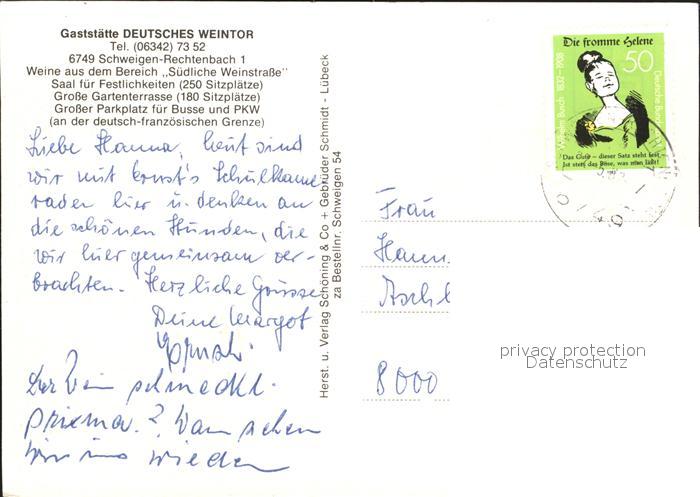 Gaststätte DEUTSCHES WEINTOR
Tel. (06342) 73 52
6749 Schweigen-Rechtenbach 1
Weine aus dem Bereich „Südliche Weinstraße"
Saal für Festlichkeiten (250 Sitzplätze)
Große Gartenterrasse (180 Sitzplätze)
Großer Parkplatz für Busse und PKW
(an der deutsch-französischen Grenze)
Liebe Hanna, heut sind
wir mit Ernst's Schulkame
raden hier u. denken an
die schönen Stunden, die
wir hier gemeinsam ver-
brachten. Herzliche Grüsse
Deine Margot
Ernst.
Der Wein schmeckt
prima. ? Wann sehen
wir uns wieder
Herst. u. Verlag Schöning & Co + Gebrüder Schmidt - Lübeck
za Bestellnr. Schweigen 54
Die fromme Helene
50
Wilhelm Busch 1832-1908
Deutsche Bundespost
Das Gute – dieser Satz steht fest –
Ist stets das Böse, was man läßt!
Frau
Hann
Aschl
8000
privacy protection
Datenschutz